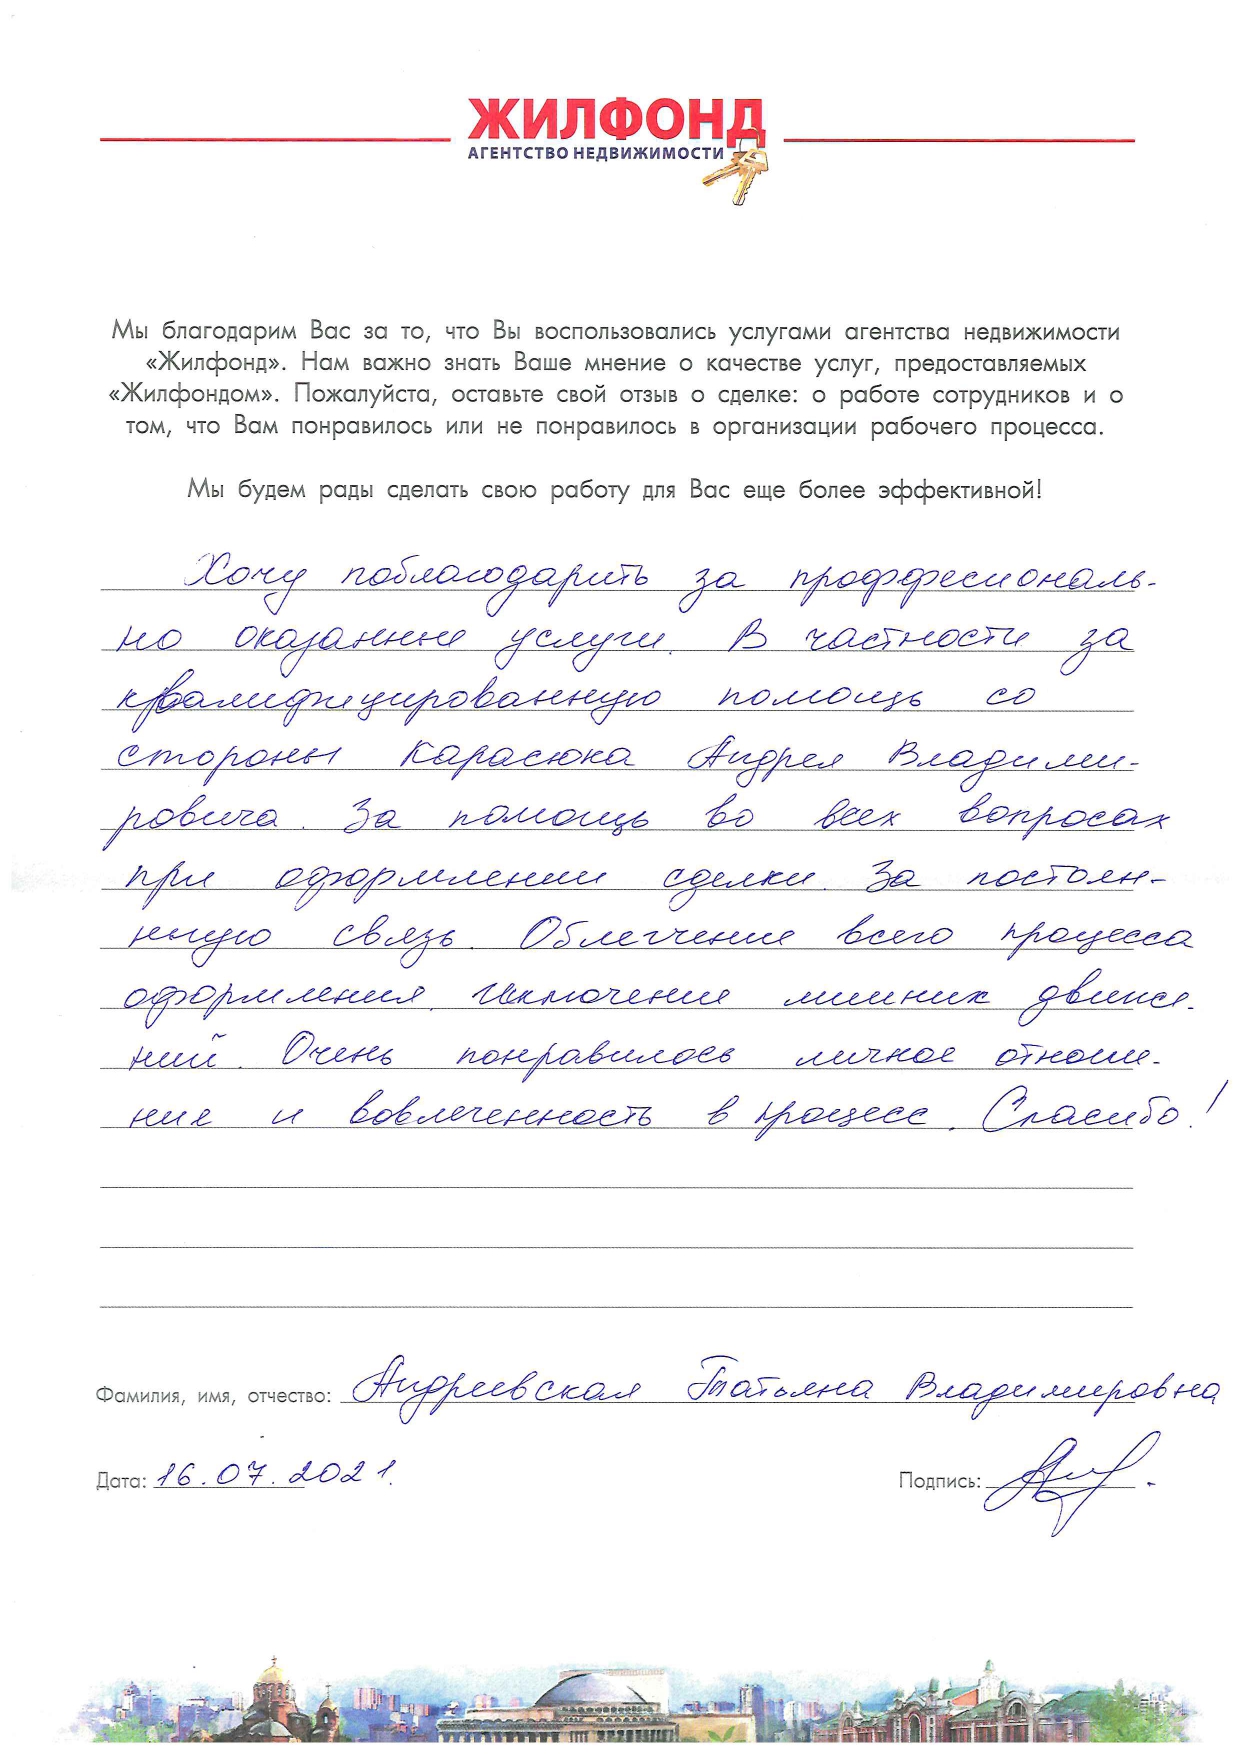 ЖИЛФОНД
АГЕНТСТВО НЕДВИЖИМОСТИ
Мы благодарим Вас за то, что Вы воспользовались услугами агентства недвижимости
«Жилфонд». Нам важно знать Ваше мнение о качестве услуг, предоставляемых
«Жилфондом». Пожалуйста, оставьте свой отзыв о сделке: о работе сотрудников и о
том, что Вам понравилось или не понравилось в организации рабочего процесса.
Мы будем рады сделать свою работу для Вас еще более эффективной!
Хочу поблагодарить за проффесиональ-
но оказанные услуги. В частности за
квалифицированную помощь со
стороны Карасюка Андрея Владими-
ровича. За помощь во всех вопросах
при оформлении сделки. За постоян-
нную связь. Облегчение всего процесса
оформления. Исключение лишних движе-
ний. Очень понравилось личное отноше-
ние и вовлеченность в процесс. Спасибо!
Фамилия, имя, отчество: Андреевская Татьяна Владимировна
Дата: 16.07.2021. Подпись: